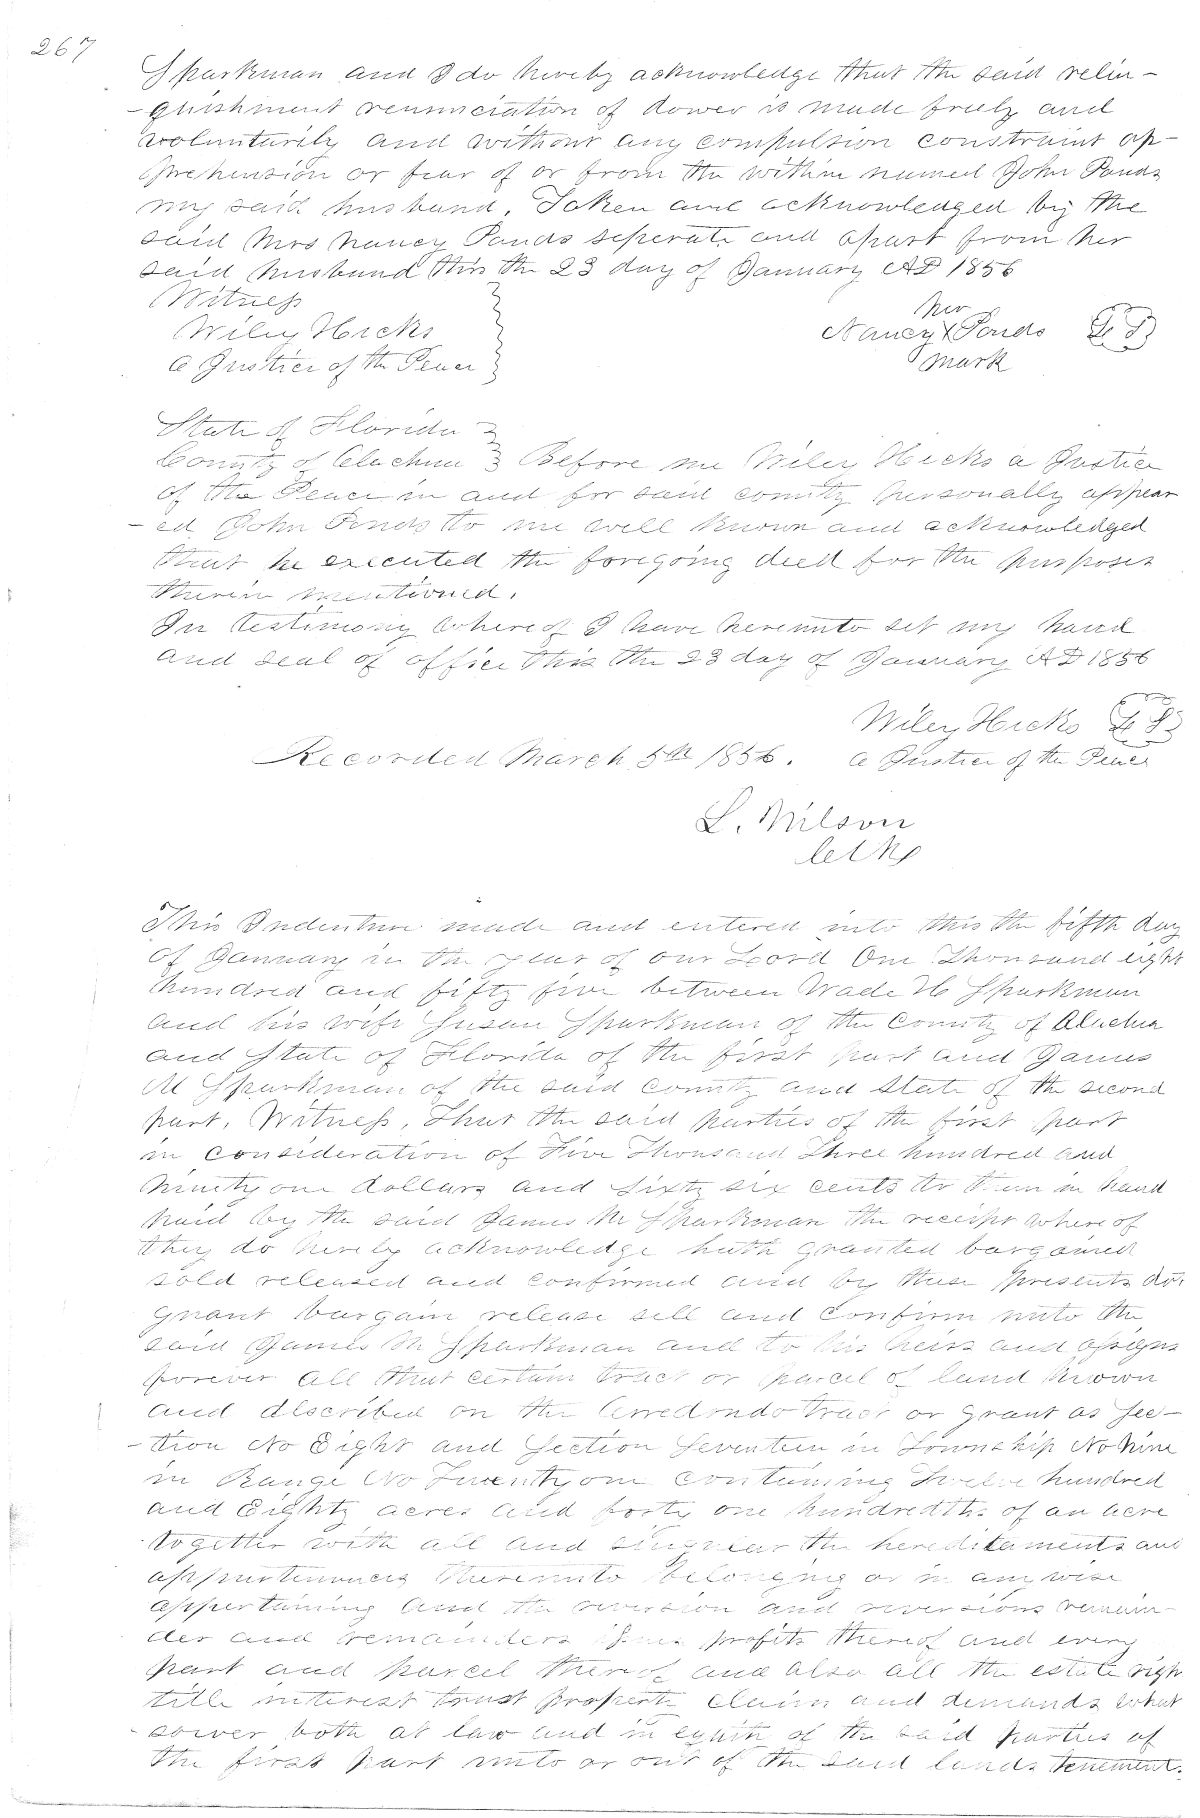 267
Sparkman and I do hereby acknowledge that the said relin-
-quishment renunciation of dower is made freely and
voluntarily and without any compulsion constraint ap-
prehension or fear of or from the within named John Ponds
my said husband. Taken and acknowledged by the
said Mrs Nancy Ponds seperate and apart from her
said husband this the 23 day of January AD 1856
Witness
Wiley Hicks
a Justice of the Peace
her
Nancy X Ponds LS
mark
State of Florida
County of Alachua Before me Wiley Hicks a Justice
of the Peace in and for said county personally appear
-ed John Ponds to me well known and acknowledged
that he executed the foregoing deed for the purposes
therein mentioned.
In testimony whereof I have hereunto set my hand
and seal of office this the 23 day of January AD 1856
Wiley Hicks LS
Recorded March 5th 1856. a Justice of the Peace
L. Wilson
Clk
This Indenture made and entered into this the fifth day
of January in the year of our Lord One Thousand eight
hundred and fifty five between Wade H Sparkman
and his wife Susan Sparkman of the County of Alachua
and State of Florida of the first part and James
M Sparkman of the said county and State of the second
part. Witness, That the said parties of the first part
in consideration of Five Thousand Three hundred and
Ninety one dollars and sixty six cents to them in hand
paid by the said James M Sparkman the receipt whereof
they do hereby acknowledge hath granted bargained
sold released and confirmed and by these presents do
grant bargain release sell and confirm unto the
said James M Sparkman and to his heirs and assigns
forever all that certain tract or parcel of land known
and described on the Arredondo tract or grant as Sec-
-tion No Eight and Section Seventeen in Township No Nine
in Range No Twenty one containing Twelve hundred
and Eighty acres and forty one hundredths of an acre
together with all and singular the hereditaments and
appurtenances thereunto belonging or in any wise
appertaining and the reversion and reversions remain-
der and remainders issues profits thereof and every
part and parcel thereof and also all the estate righ
title interest trust property claim and demands what
-soever both at law and in equity of the said parties of
the first part unto or out of the said lands tenement.